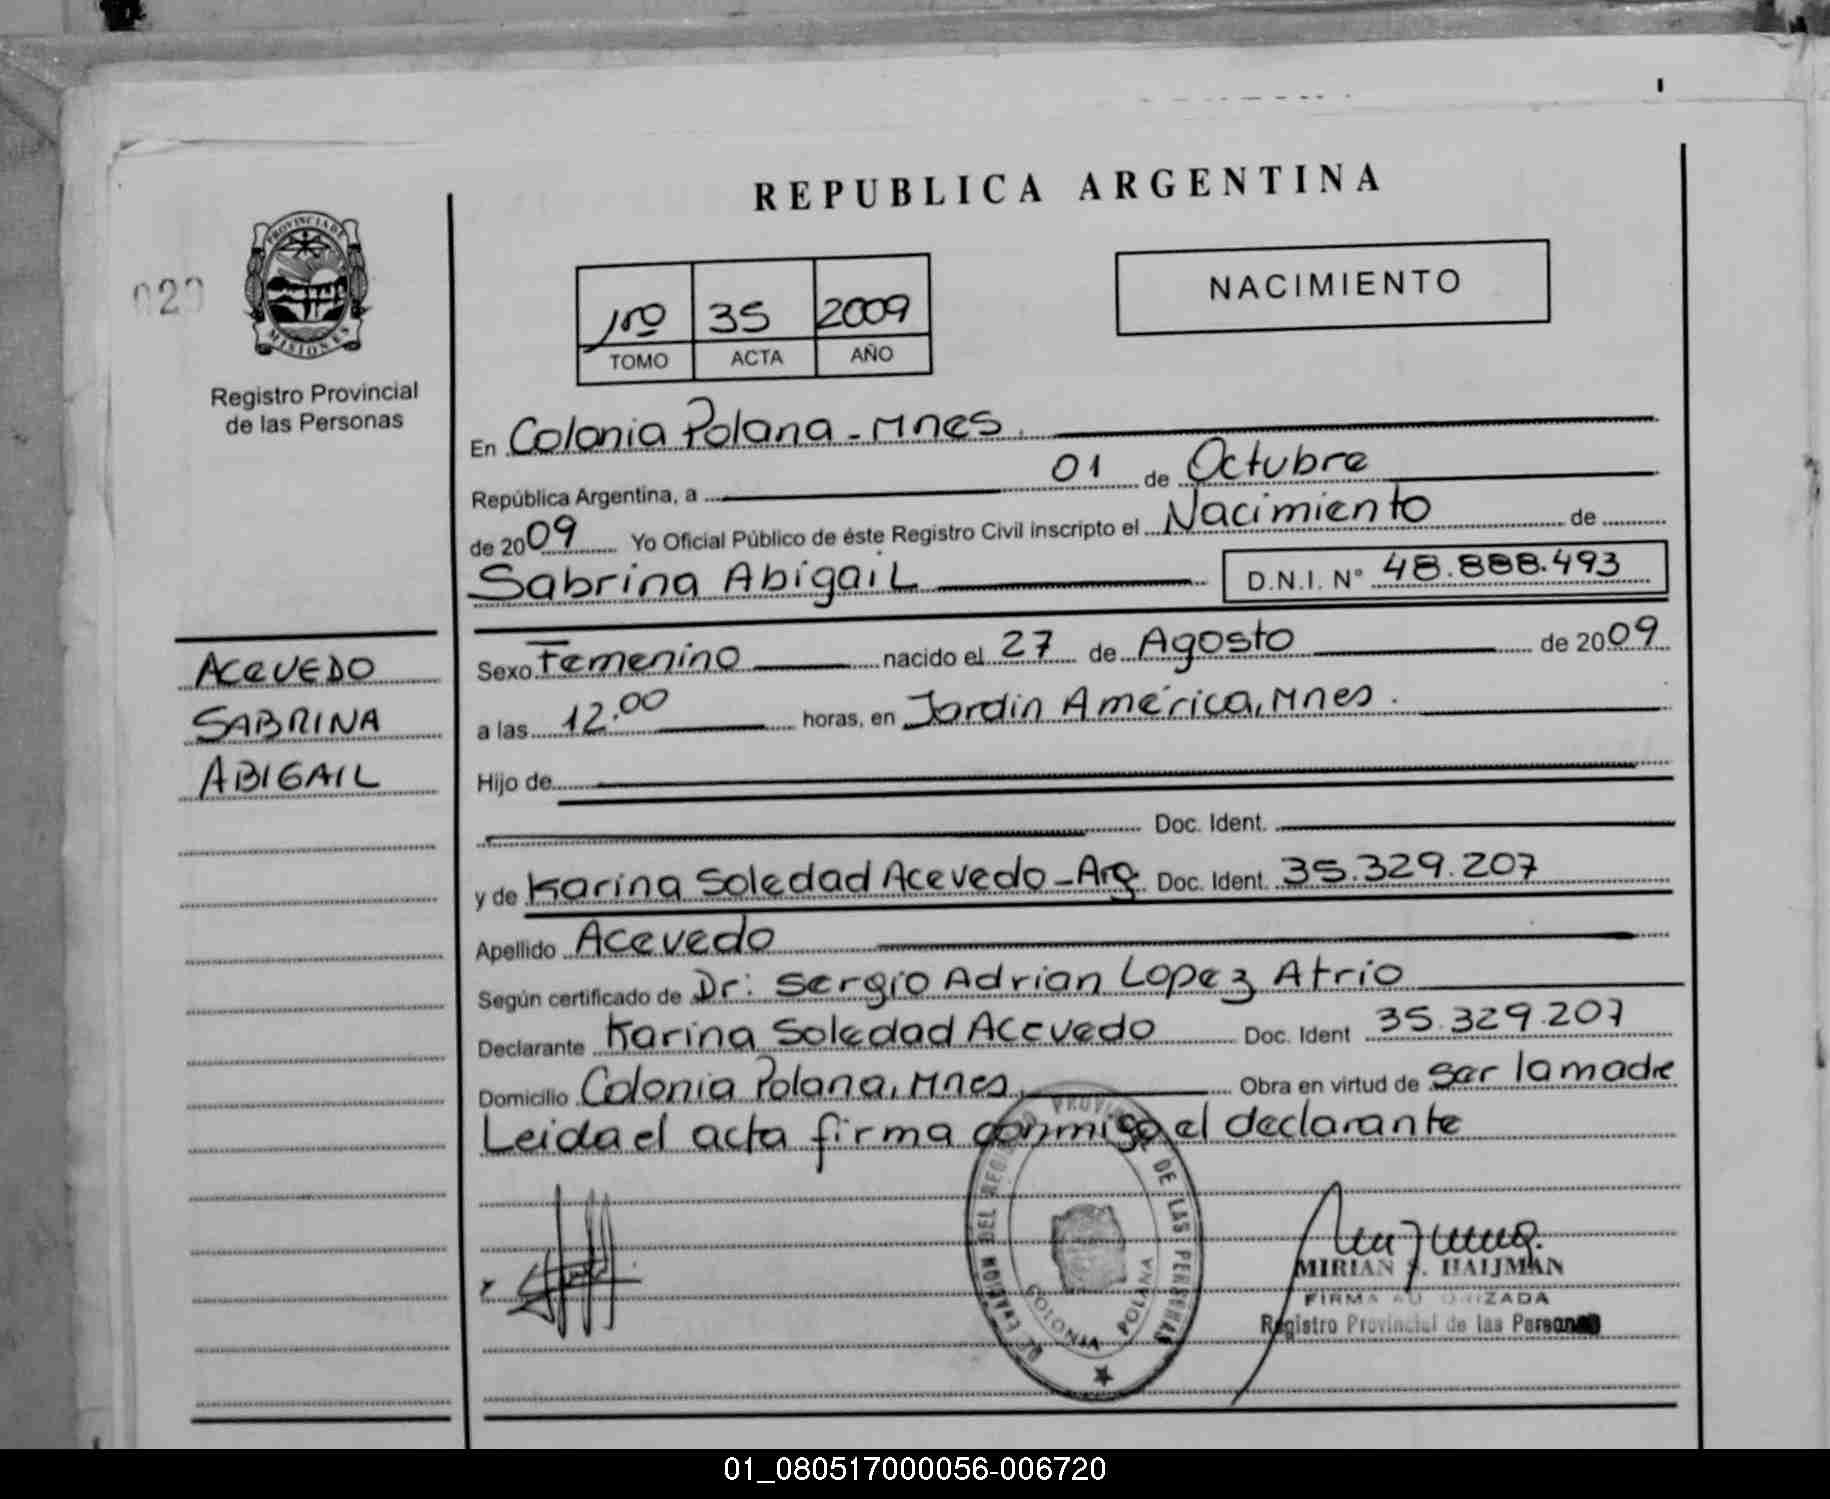 REPUBLICA ARGENTINA
NACIMIENTO
020
PROVINCIA DE
MISIONES
Registro Provincial
de las Personas
1ro 35 2009
TOMO ACTA AÑO
En Colonia Polana - Mnes.
República Argentina, a 01 de Octubre
de 2009 Yo Oficial Público de éste Registro Civil inscripto el Nacimiento de
Sabrina Abigail D.N.I. N° 48.888.493
ACEVEDO
SABRINA
ABIGAIL
Sexo Femenino nacido el 27 de Agosto de 2009
a las 12.00 horas, en Jardin América, Mnes.
Hijo de
Doc. Ident.
y de Karina Soledad Acevedo - Arg. Doc. Ident. 35.329.207
Apellido Acevedo
Según certificado de Dr: Sergio Adrian Lopez Atrio
Declarante Karina Soledad Acevedo Doc. Ident 35.329.207
Domicilio Colonia Polana, Mnes. Obra en virtud de ser la madre
Leida el acta firma conmigo el declarante
DEL REGISTRO PROVINCIAL DE LAS PERSONAS
COLONIA POLANA
MIRIAN S. HAIJMAN
FIRMA AUTORIZADA
Registro Provincial de las Personas
01_080517000056-006720